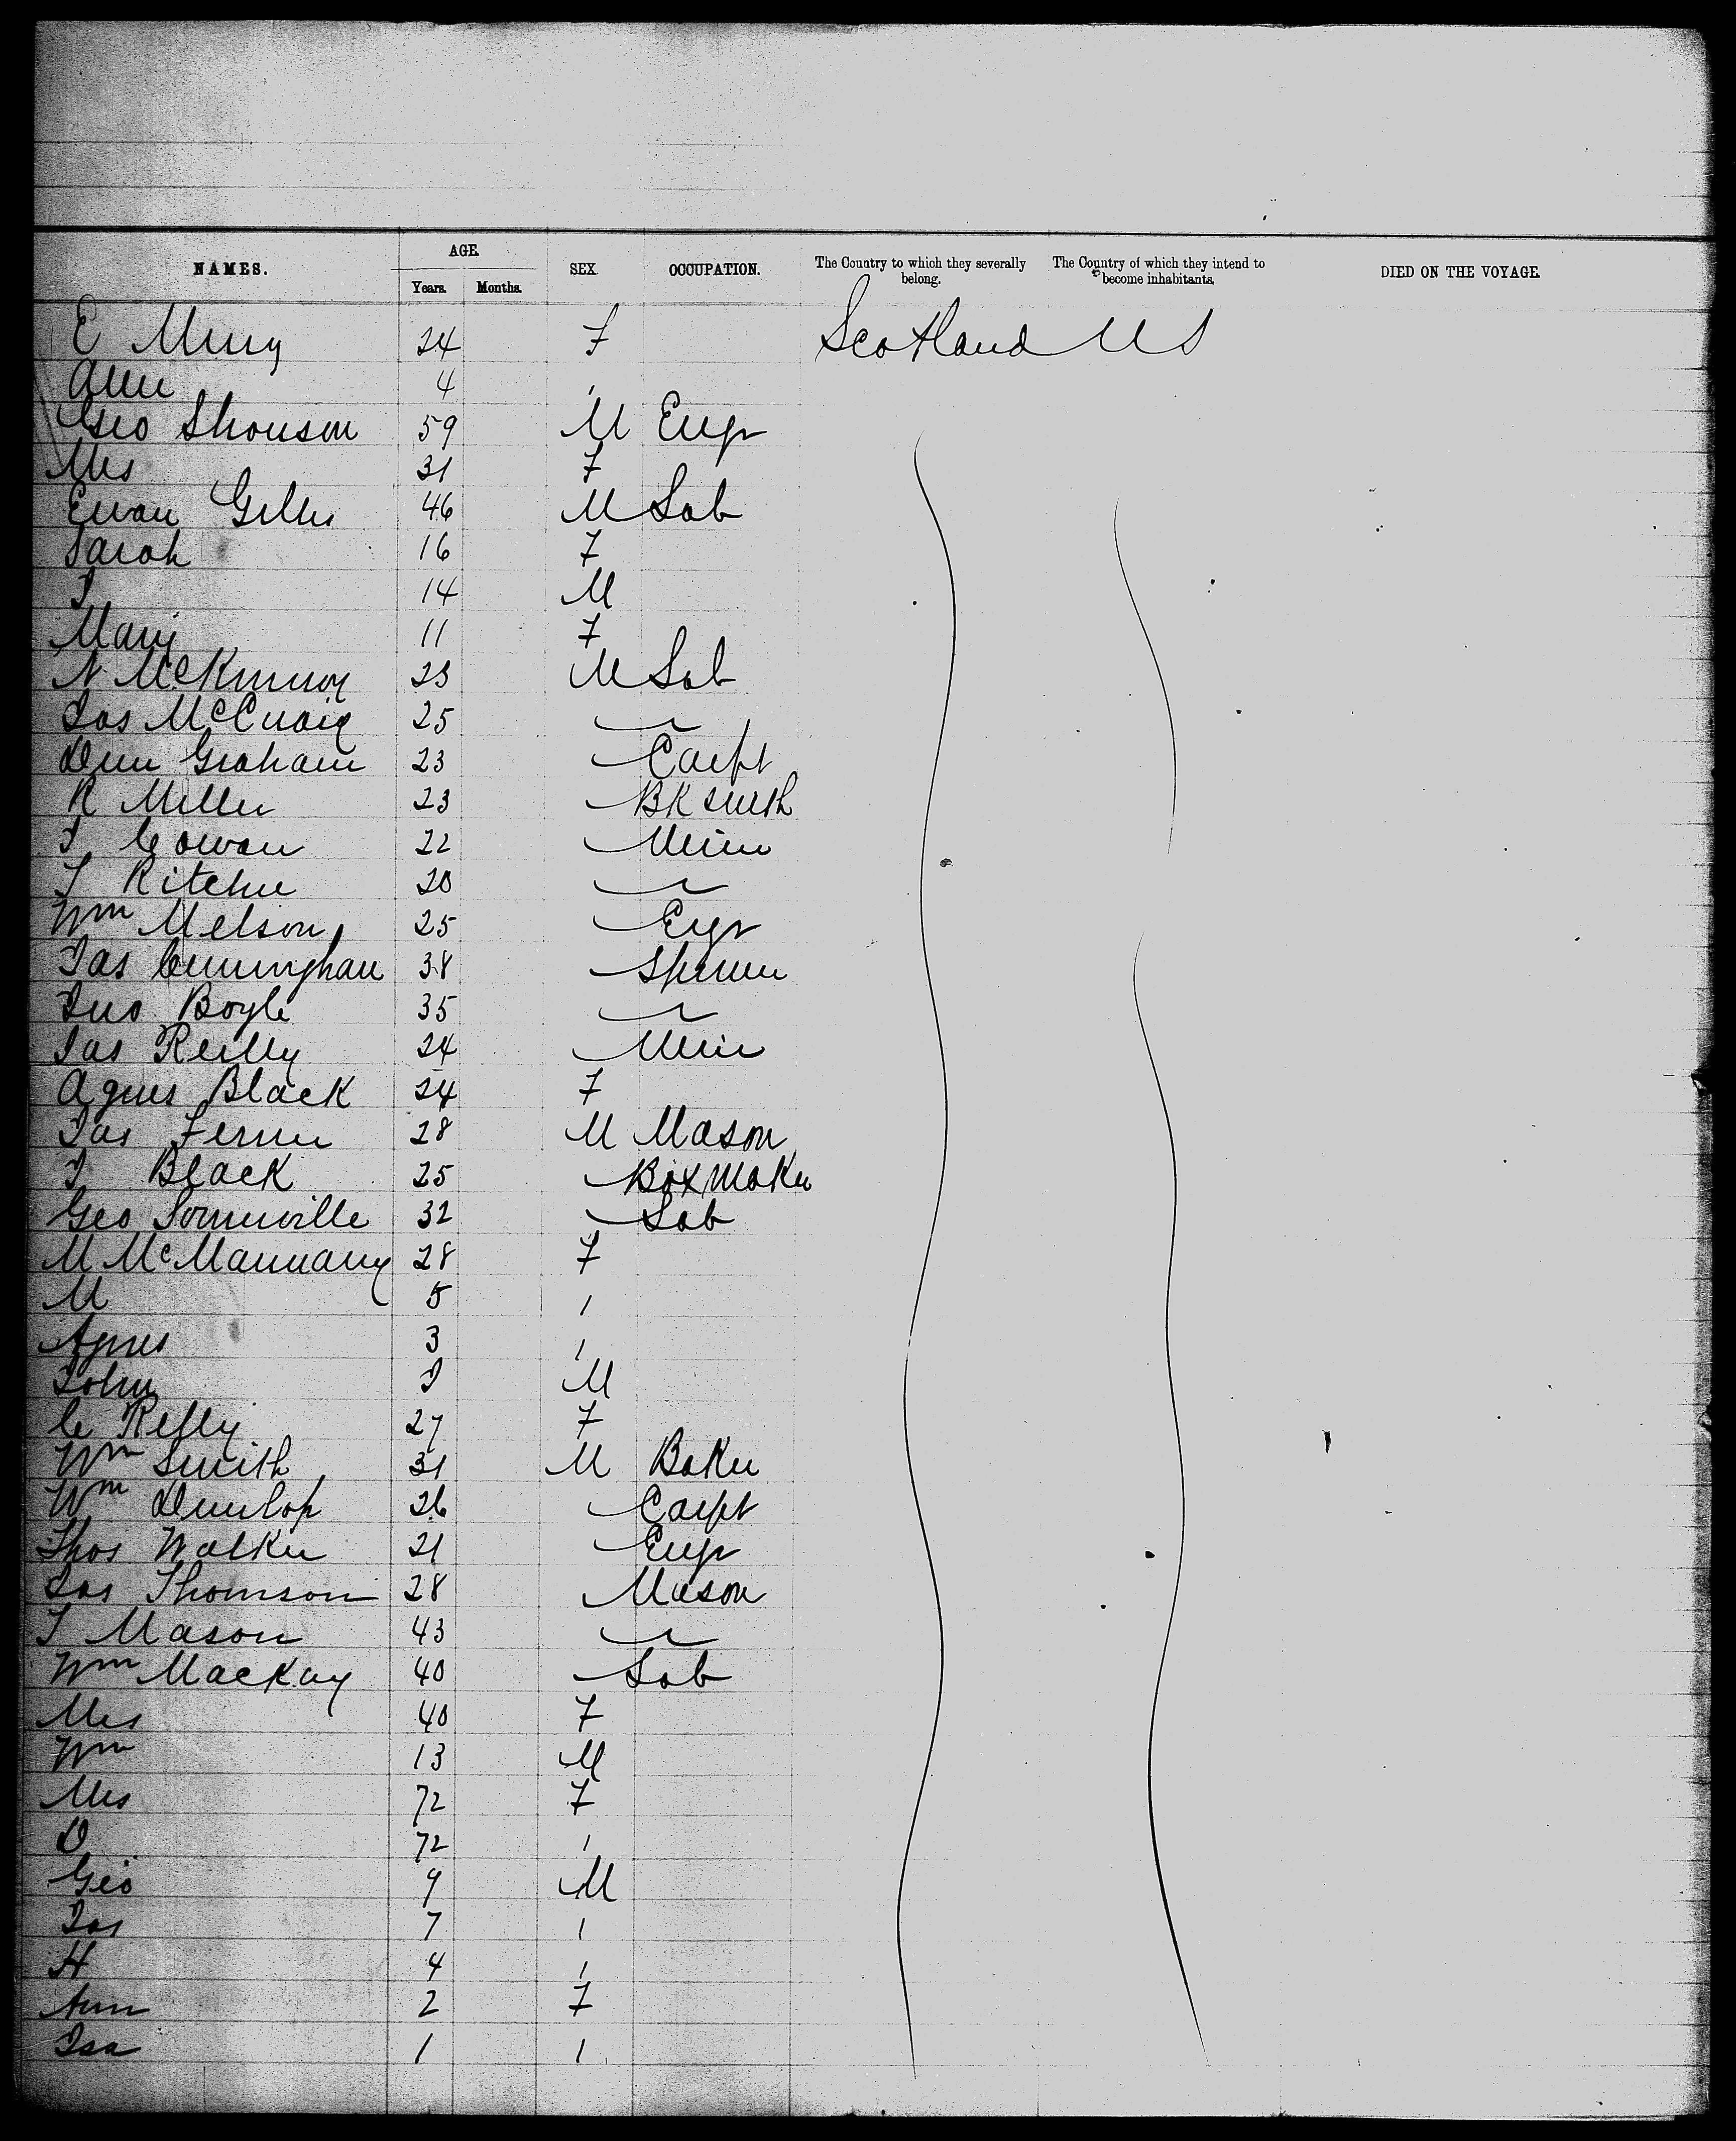 NAMES. AGE. Years. Months. SEX. OCCUPATION. The Country to which they severally belong. The Country of which they intend to become inhabitants. DIED ON THE VOYAGE.
E 24 F Scotland US
Ann 4 "
Geo 59 M Engr
Mrs 31 F
Ewan Gillis 46 M Lab
Sarah 16 F
J 14 M
Mary 11 F
N McKinnon 23 M Lab
Jas McCuaig 25
Dun Graham 23 Carpt
R Miller 23 BK smith
J Cowan 22 Miner
J Ritchie 20
Wm Melson 25 Engr
Jas Cunningham 38
Jno Boyle 35
Jas Reilly 24 Miner
Agnes Black 24 F
Jas 28 M Mason
J Black 25 Box Maker
Geo Somerville 32 Lab
M McMannany 28 F
M 5 "
Agnes 3 "
John M
C Reilly 27 F
Wm Smith 31 M Baker
Wm Dunlop 26 Carpt
Thos Walker 21 Engr
Jas Thomson 28 Mason
J Mason 43
Wm Mackay 40 Lab
Mrs 40 F
Wm 13 M
Mrs 72 F
D 72 "
Geo 9 M
Jas 7 "
H 4 "
Ann 2 F
Isa 1 "